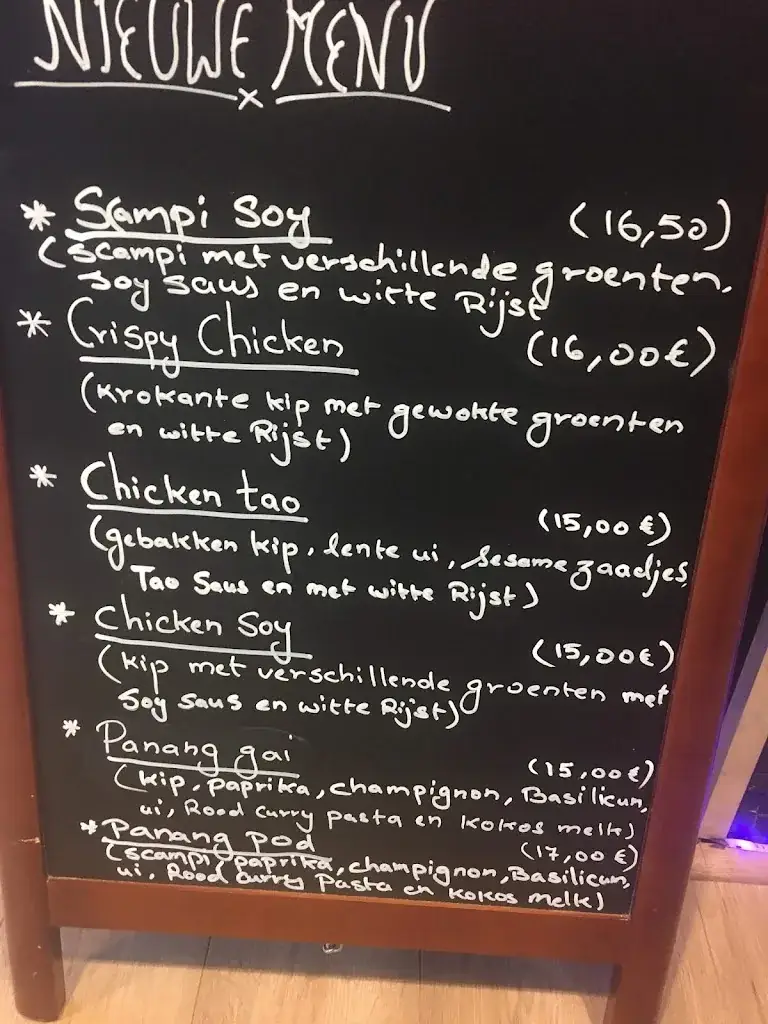 NIEUWE MENU
x
* Scampi Soy (16,50)
(scampi met verschillende groenten,
soy saus en witte Rijst
* Crispy Chicken (16,00€)
(Krokante kip met gewokte groenten
en witte Rijst)
* Chicken tao (15,00 €)
(gebakken kip, lente ui, sesame zaadjes,
Tao Saus en met witte Rijst)
* Chicken Soy (15,00€)
(kip met verschillende groenten met
Soy saus en witte Rijst)
* Panang gai (15,00€)
(kip, paprika, champignon, Basilicun,
ui, Rood curry pasta en kokos melk)
* Panang pod (17,00 €)
(scampi, paprika, champignon, Basilicum,
ui, Rood curry Pasta en kokos melk)